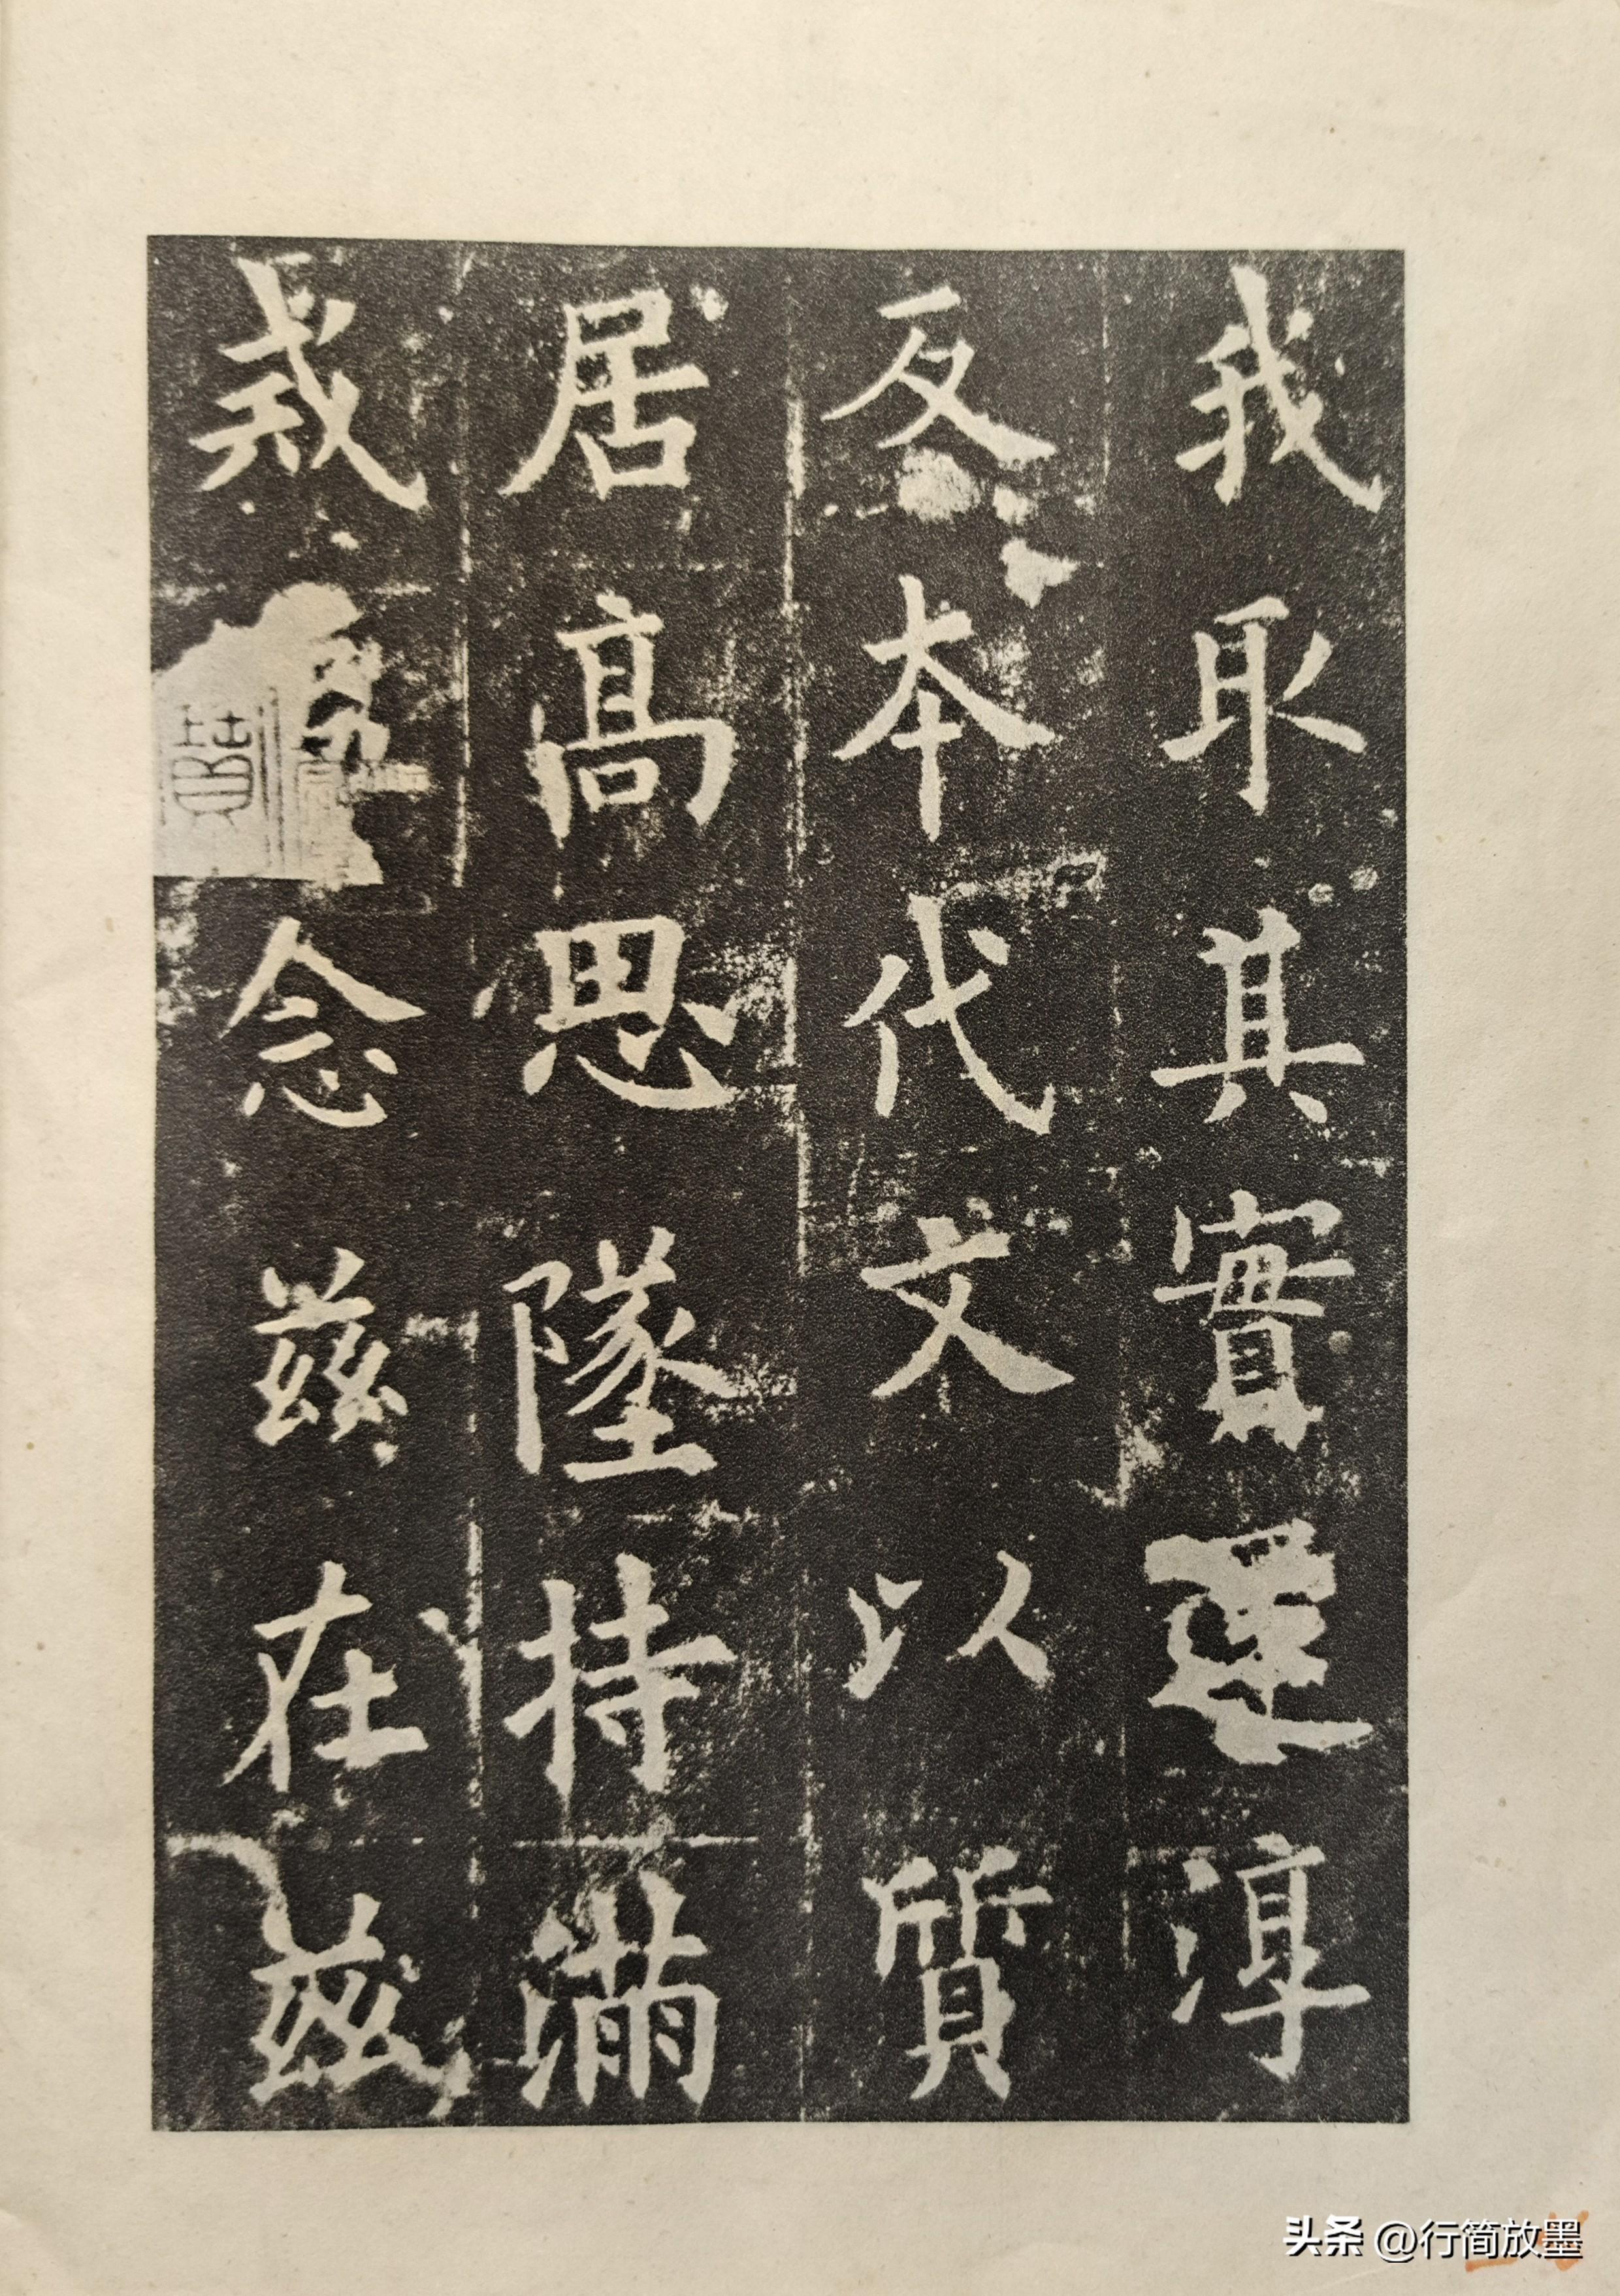 我取其實還淳
反本代文以質
居高思墜持滿
戒念茲在茲
头条 @行简放墨